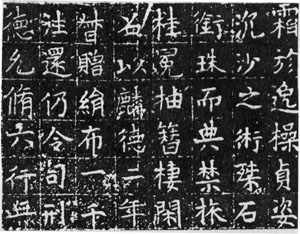 霜於邊操貞姿
沉沙之術殊石
銜珠而典禁旅
挂冕抽簪棲閑
以麟德二年
贈絹布一千
往還仍令司刑
德允脩六行無